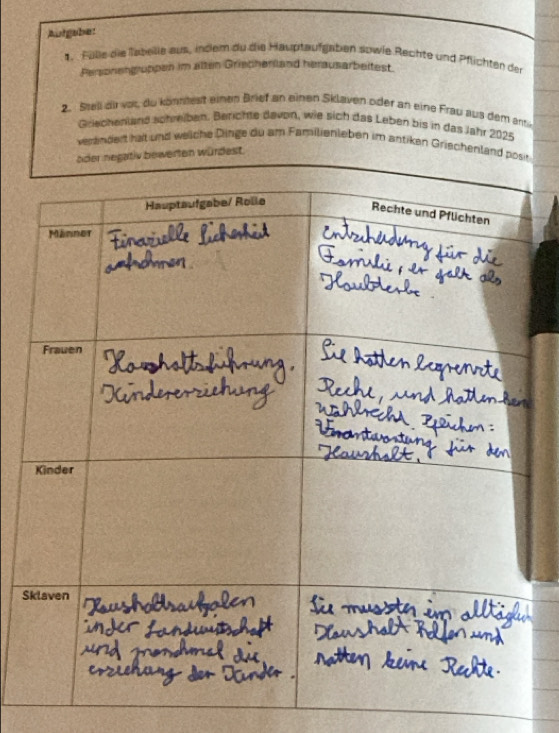 Aufgabe:
1. Fülle die Tabelle aus, indem du die Hauptaufgaben sowie Rechte und Pflichten der
Personengruppen im alten Griechenland herausarbeitest.
2. Stell dir vor, du könntest einen Brief an einen Sklaven oder an eine Frau aus dem
Griechenland schreiben. Berichte davon, wie sich das Leben bis in das Jahr 2025
verändert hat und welche Dinge du am Familienleben im antiken Griechenland
oder negativ bewerten würdest.
Hauptaufgabe/ Rolle
Rechte und Pflichten
Männer
Finazielle Sicherheit
Entscheidung für die
Familie, er galt als
Frauen
Haushaltsführung.
Kindererziehung
Sie hatten begrenzte
Rechte, und hatten
Wahlrecht.
Verantwortung für den
Haushalt.
Kinder
Sklaven
Haushaltsaufgaben
in der Landwirtschaft
und manchmal die
erziehung der Kinder.
Sie mussten im
Haushalt helfen und
hatten keine Rechte.